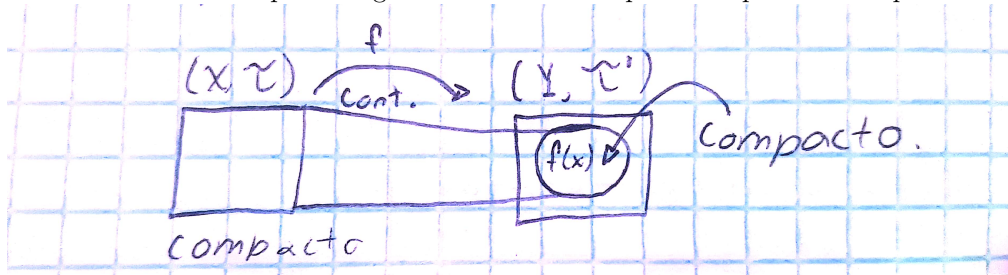 f
(X, τ)
cont.
(Y, τ')
f(x)
compacto.
compacto